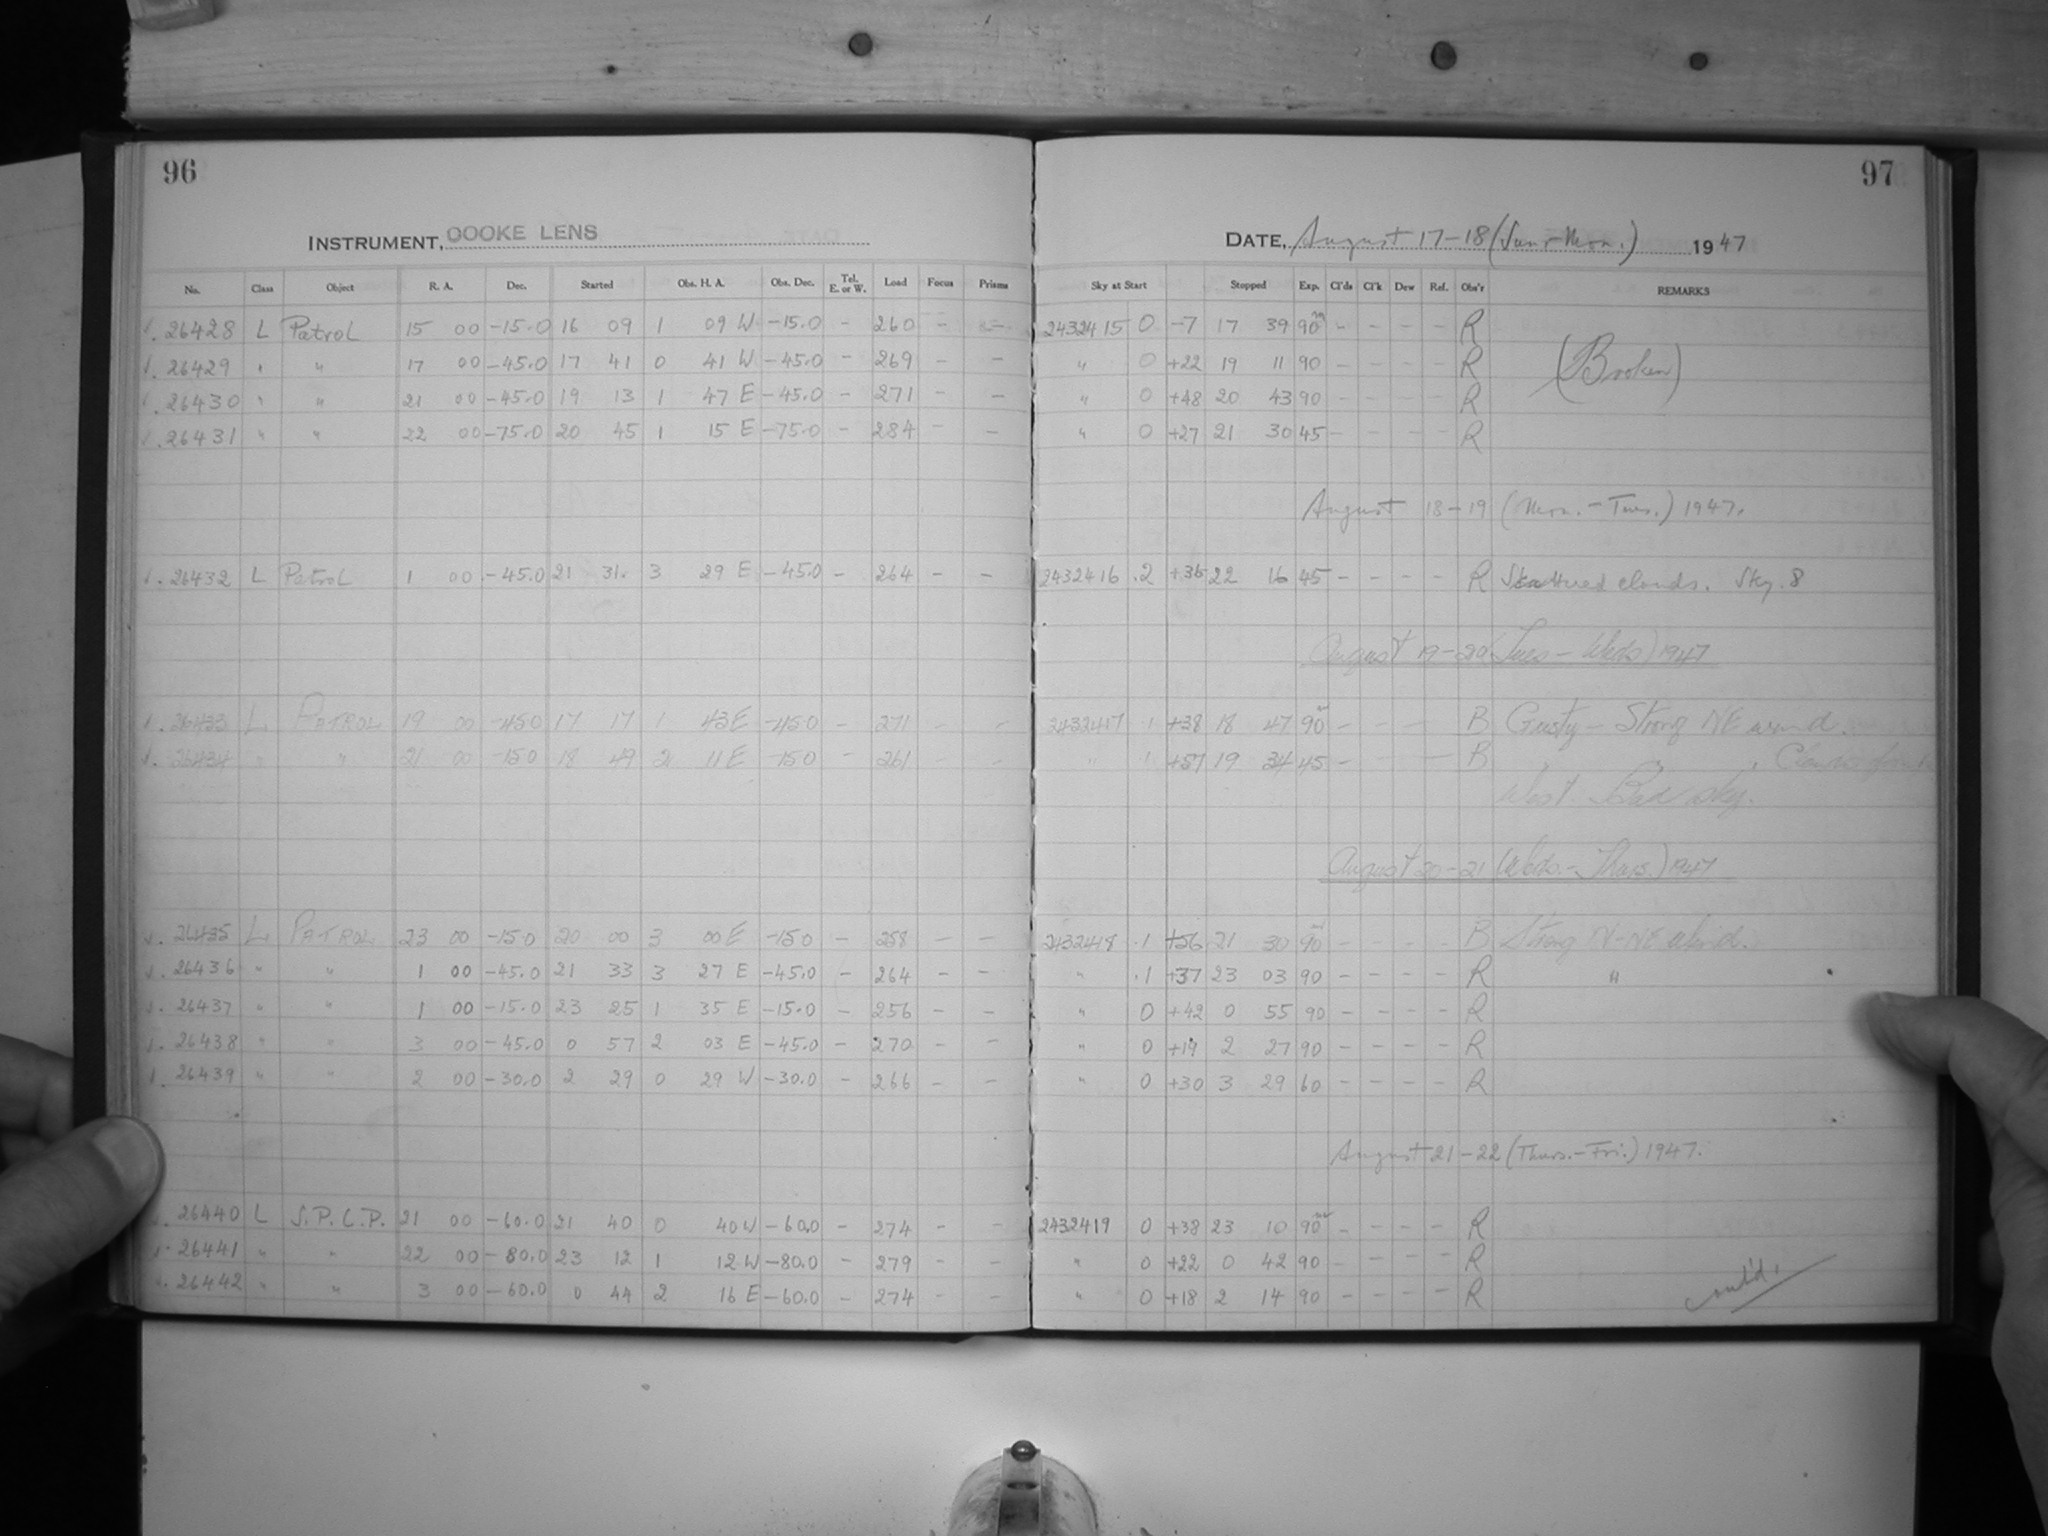 96
97
INSTRUMENT, COOKE LENS
DATE, August 17-18 (Sun-Mon.) 1947
No. Class Object R. A. Dec. Started Obs. H. A. Obs. Dec. Tel. E. or W. Load Focus Prisms Sky at Start Stopped Exp. Cl'ds Cl'k Dew Ref. Obs'r REMARKS
26428 L Patrol 15 00 -15.0 16 09 1 09 W -15.0 - 260 - - 2432415 0 -7 17 39 90m - - - - R
26429 " " 17 00 -45.0 17 41 0 41 W -45.0 - 269 - - " 0 +22 19 11 90 - - - - R (Broken)
26430 " " 21 00 -45.0 19 13 1 47 E -45.0 - 271 - - " 0 +48 20 43 90 - - - - R
26431 " " 22 00 -75.0 20 45 1 15 E -75.0 - 284 - - " 0 +27 21 30 45 - - - - R
August 18-19 (Mon.-Tues.) 1947.
26432 L Patrol 1 00 -45.0 21 31. 3 29 E -45.0 - 264 - - 2432416 .2 +36 22 16 45 - - - - R Scattered clouds. Sky .8
August 19-20 (Tues-Weds) 1947
26433 L PATROL 19 00 -45.0 17 17 1 43 E -45.0 - 271 - - 2432417 1 +38 18 47 90m - - - B Gusty - Strong NE wind.
26434 " " 21 00 -15.0 18 49 2 11 E -15.0 - 261 - - " 1 +57 19 34 45 - - - - B " " , Clouds from
West. Bad sky.
August 20-21 (Weds.-Thurs.) 1947
26435 L PATROL 23 00 -15.0 20 00 3 00 E -15.0 - 258 - - 2432418 .1 +56 21 30 90m - - - - B Strong N-NE wind.
26436 " " 1 00 -45.0 21 33 3 27 E -45.0 - 264 - - " .1 +37 23 03 90 - - - - R "
26437 " " 1 00 -15.0 23 25 1 35 E -15.0 - 256 - - " 0 +42 0 55 90 - - - - R
26438 " " 3 00 -45.0 0 57 2 03 E -45.0 - 270 - - " 0 +19 2 27 90 - - - - R
26439 " " 2 00 -30.0 2 29 0 29 W -30.0 - 266 - - " 0 +30 3 29 60 - - - - R
August 21-22 (Thurs.-Fri.) 1947.
26440 L S.P.C.P. 21 00 -60.0 21 40 0 40 W -60.0 - 274 - - 2432419 0 +38 23 10 90m - - - - R
26441 " " 22 00 -80.0 23 12 1 12 W -80.0 - 279 - - " 0 +22 0 42 90 - - - - R
26442 " " 3 00 -60.0 0 44 2 16 E -60.0 - 274 - - " 0 +18 2 14 90 - - - - R
cont'd.